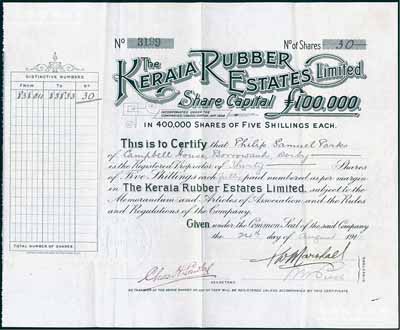 No 3199 No of Shares 30
The
Keraia Rubber
Estates Limited
Share Capital £100,000.
INCORPORATED UNDER THE
IN 400,000 SHARES OF FIVE SHILLINGS EACH.
DISTINCTIVE NUMBERS
FROM TO BY
30
This is to Certify that Philip Samuel Parks
of Campbell House,
is the Registered Proprietor of Thirty Shares
of Five Shillings each fully paid numbered as per margin
in The Keraia Rubber Estates Limited, subject to the
Memorandum and Articles of Association and the Rules
and Regulations of the Company.
Given under the Common Seal of the said Company
the day of August 191
TOTAL NUMBER OF SHARES
SECRETARY
DIRECTORS
NO TRANSFER OF THE ABOVE SHARES OR ANY OF THEM WILL BE REGISTERED UNLESS ACCOMPANIED BY THIS CERTIFICATE.